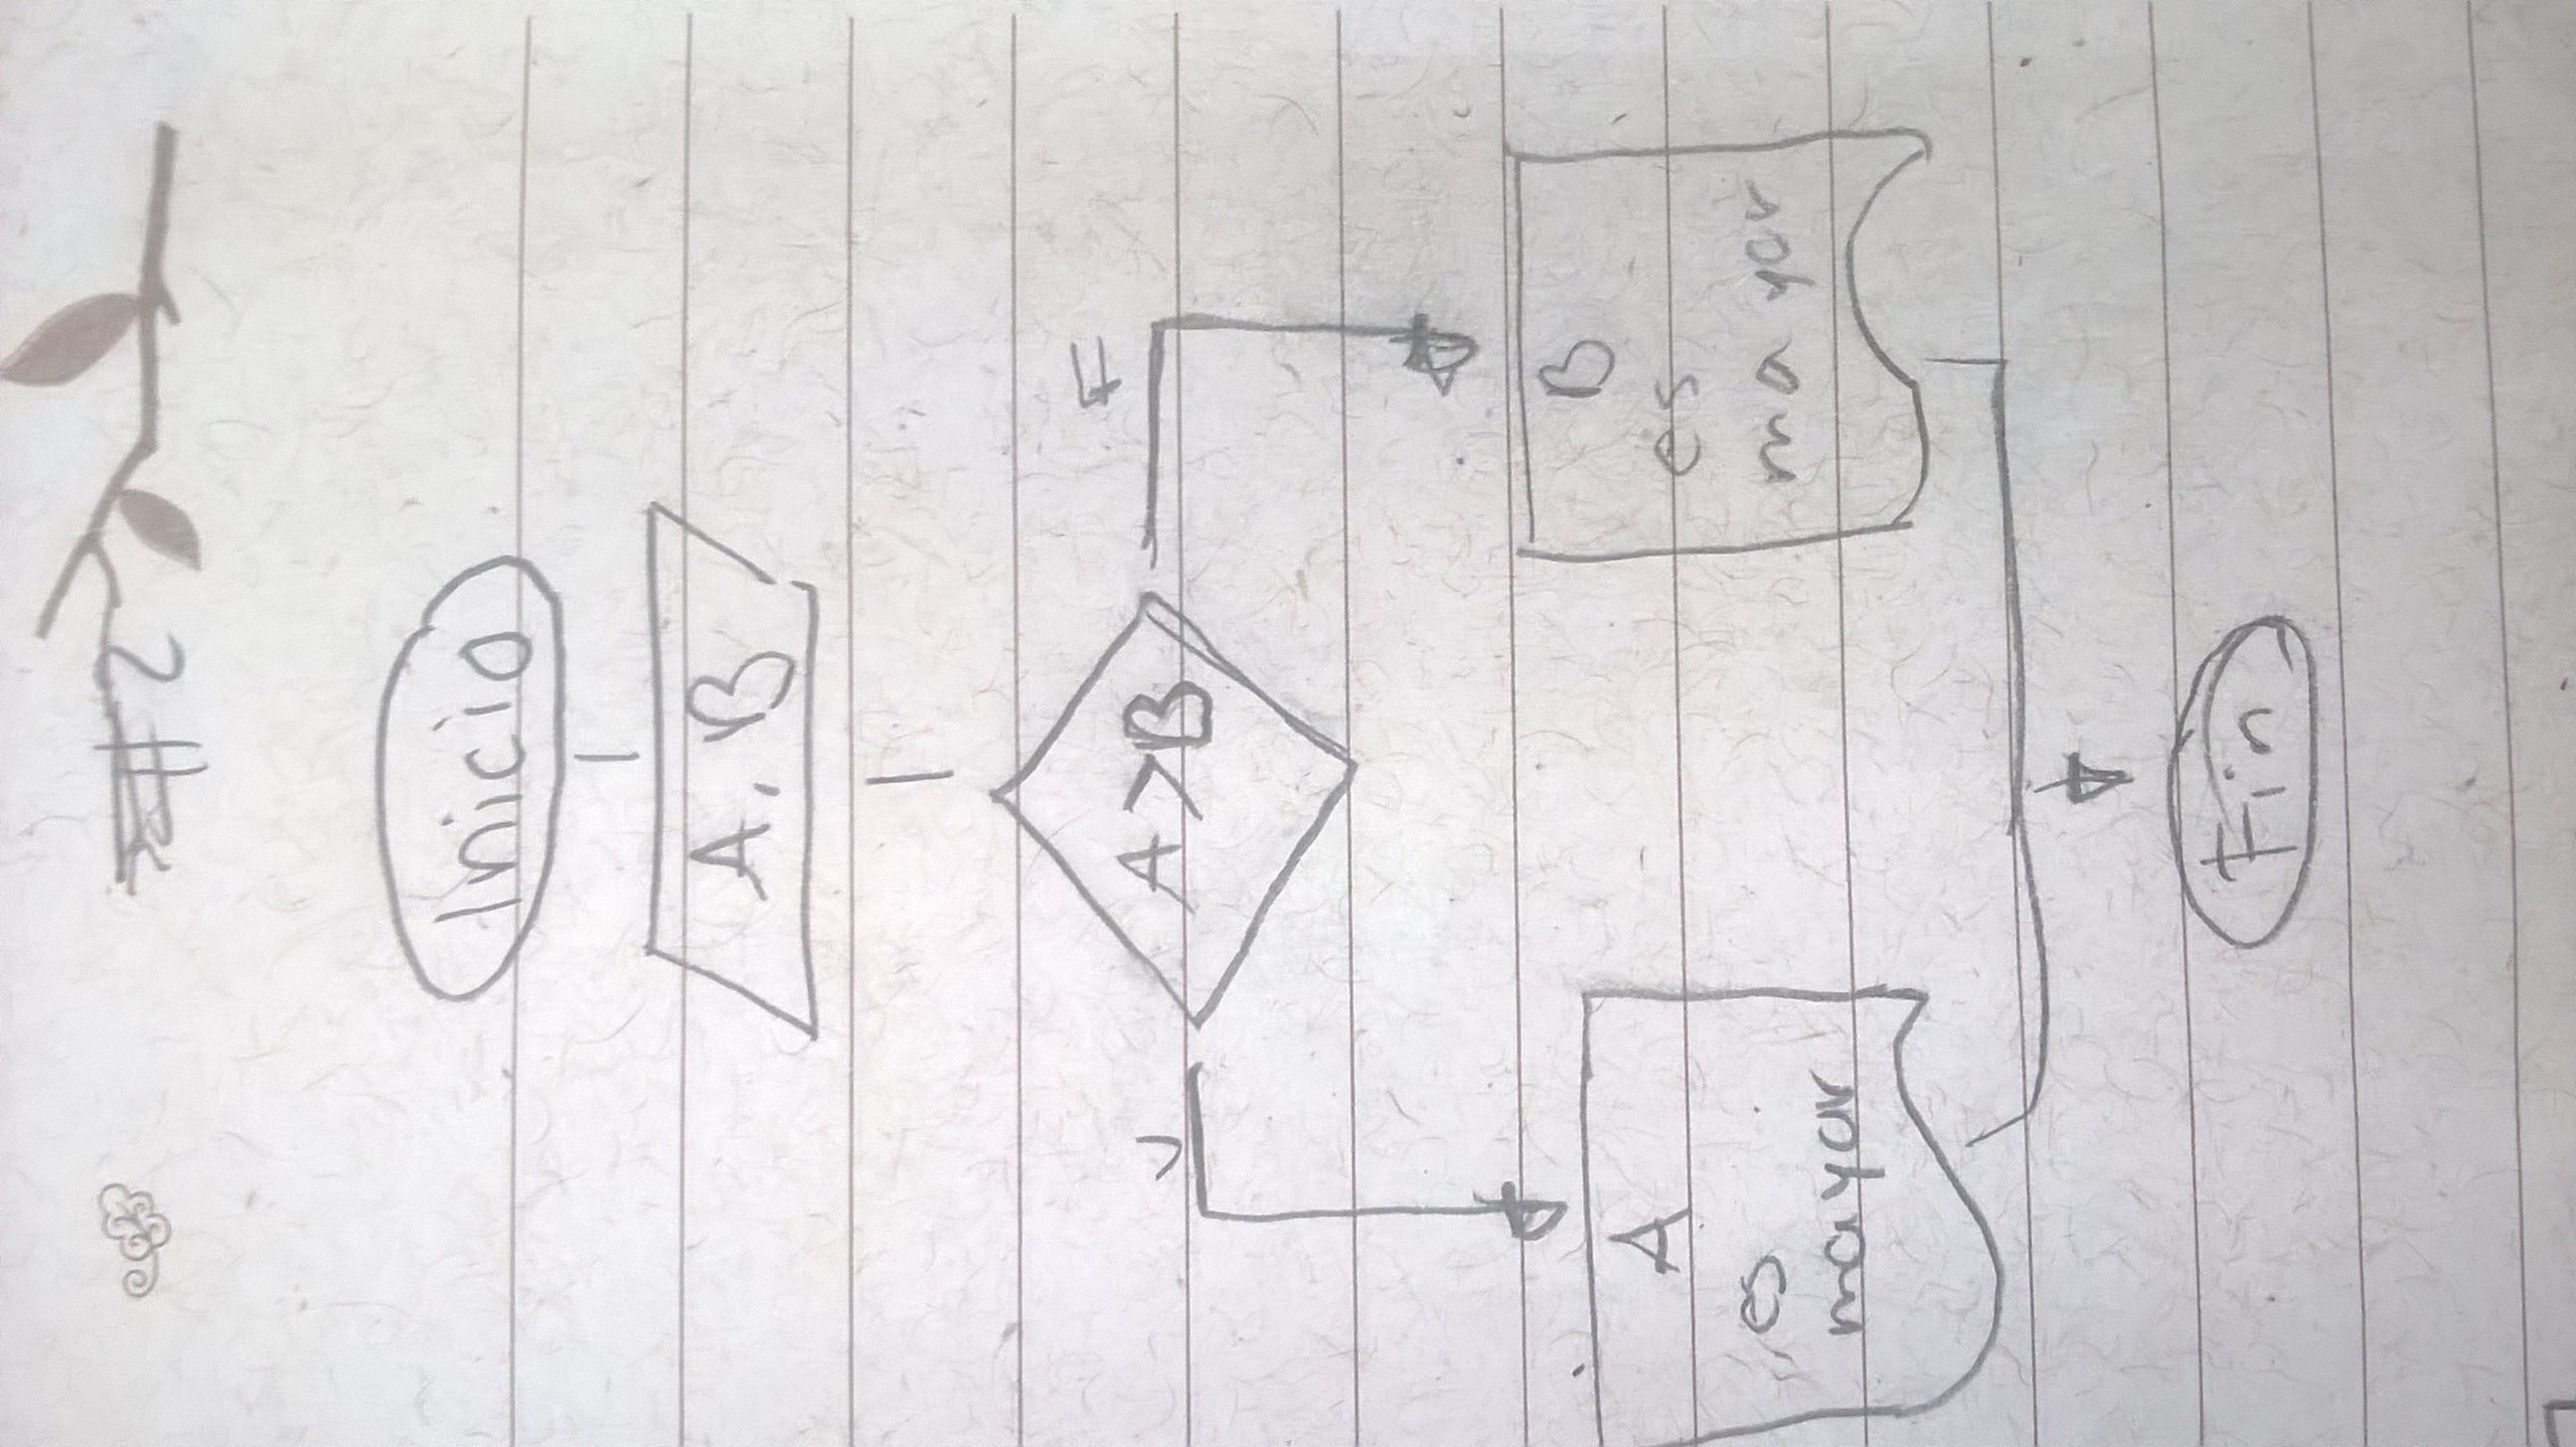 #2
Inicio
A, B
A>B
V
F
A
es
mayor
B
es
mayor
Fin